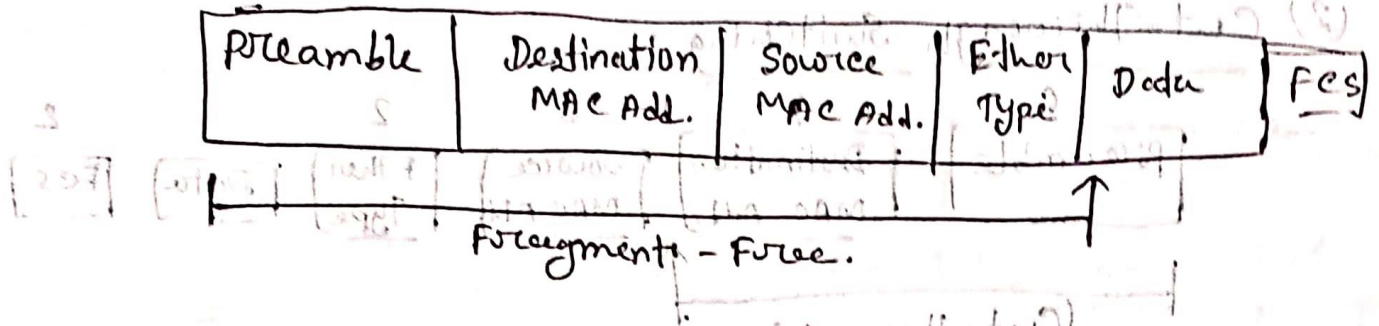 Preamble
Destination
MAC Add.
Source
MAC Add.
Ether
Type
Data
FCS
Fragment - Free.